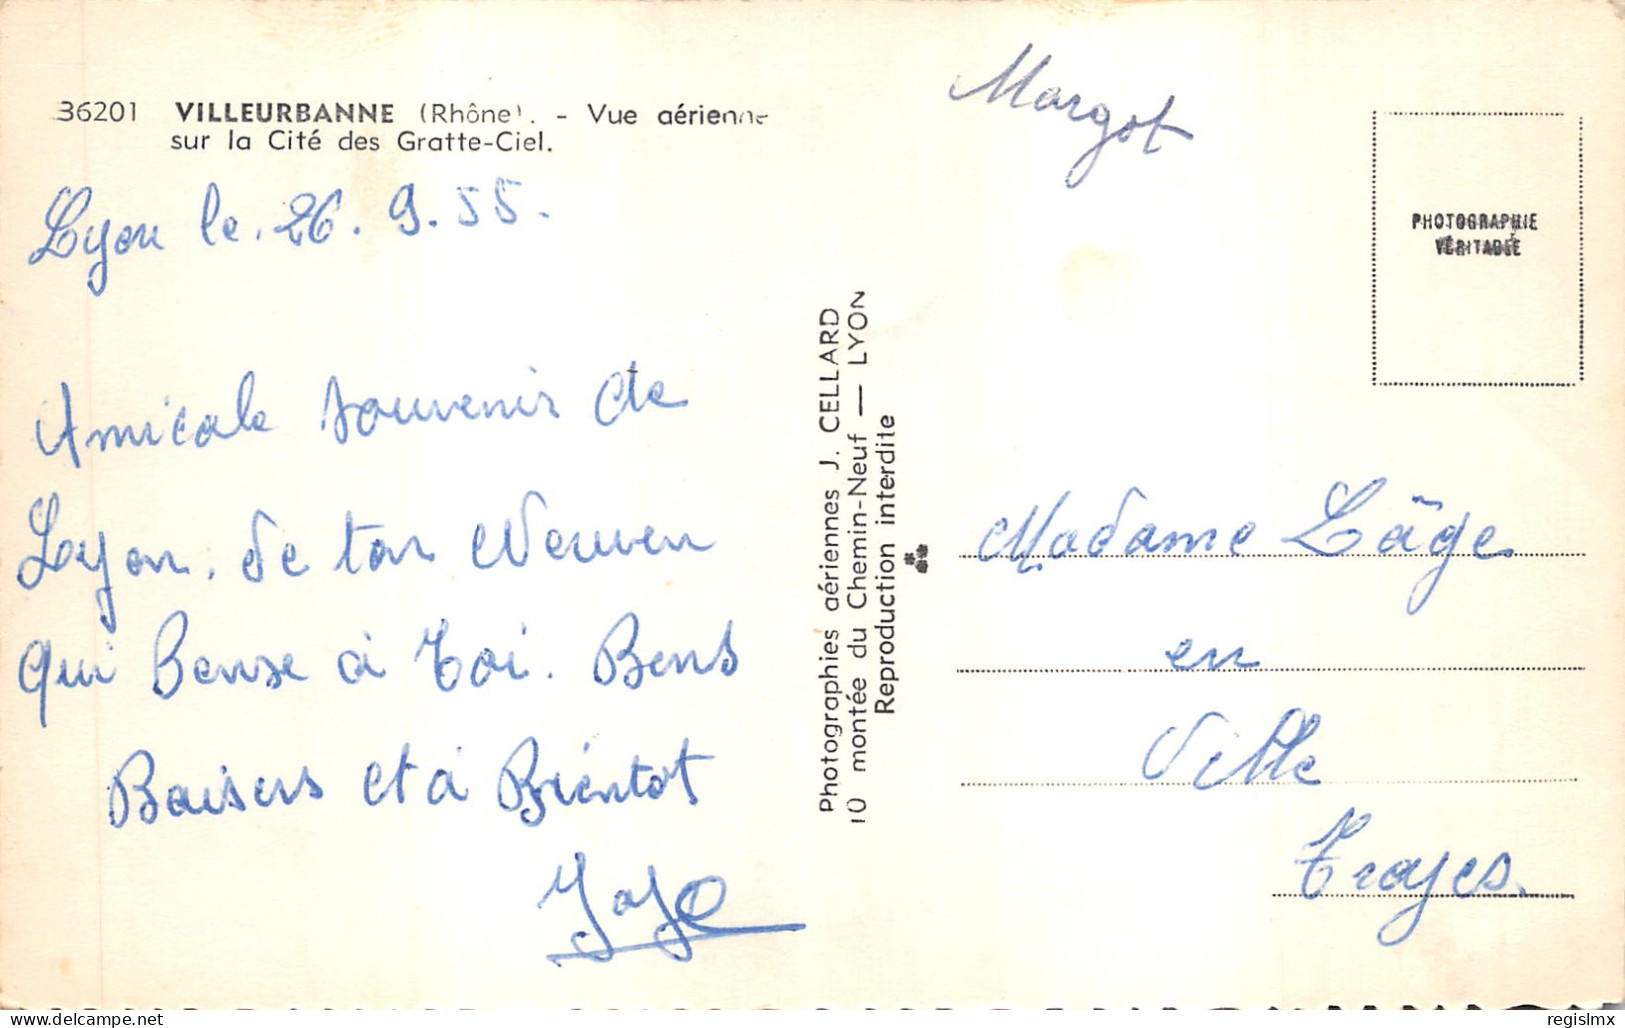 36201 VILLEURBANNE (Rhône). - Vue aérienne
sur la Cité des Gratte-Ciel.
Lyon le. 26. 9. 55.
Amicale souvenir de
Lyon. de ton Neuveu
qui Bense à Toi. Bons
Baisers et à Bientot
JoJo
Photographies aériennes J. CELLARD
10 montée du Chemin-Neuf — LYON
Reproduction interdite
Margot
PHOTOGRAPHIE
VÉRITABLE
Madame Lâge
en
Ville
Troyes.
regislmx